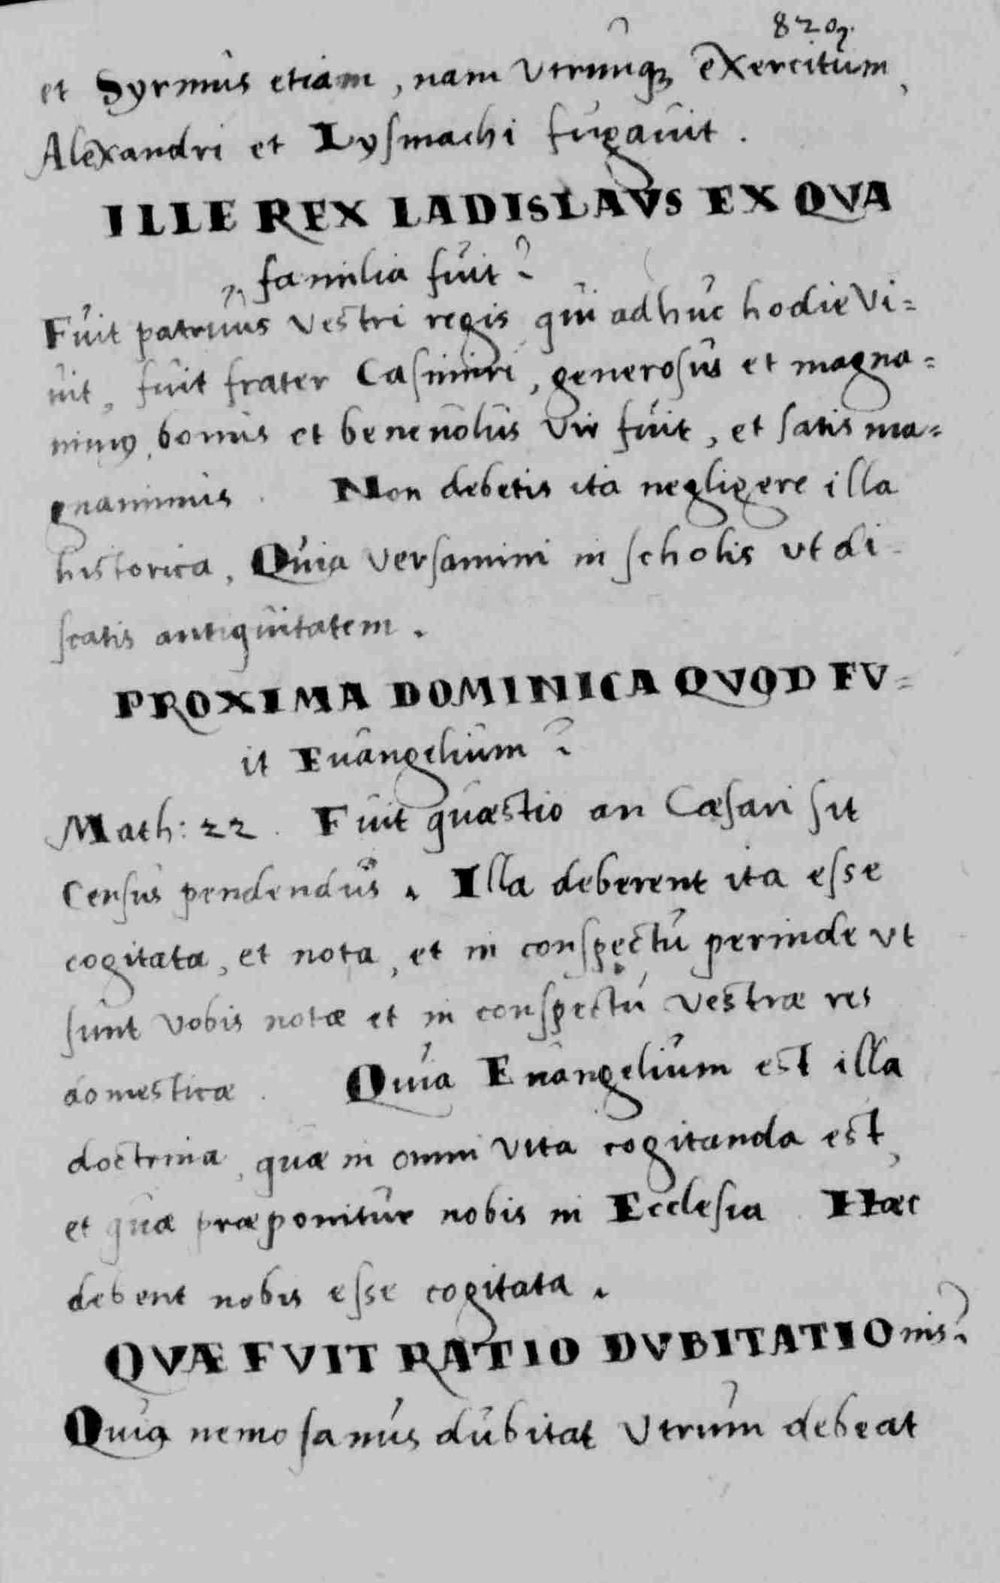 829.
et Syrmus etiam, nam Vtrunq; exercitum,
Alexandri et Lysmachi fugauit.
ILLE REX LADISLAVS EX QVA
familia fuit?
Fuit patruus Vestri regis qui adhuc hodie Vi=
uit, fuit frater Casimiri, generosus et magna=
nimus, bonus et beneuolus Vir fuit, et satis ma=
gnanimus. Non debetis ita negligere illa
historica, Quia Versamini in scholis Vt di=
scatis antiquitatem.
PROXIMA DOMINICA QVOD FV=
it Euangelium?
Math: 22. Fuit quæstio an Cæsari sit
Census pendendus. Illa deberent ita esse
cogitata, et nota, et in conspectu perinde Vt
sunt Vobis notæ et in conspectu Vestræ res
domesticæ. Quia Euangelium est illa
doctrina, quæ in omni Vita cogitanda est,
et quæ præponitur nobis in Ecclesia. Hæc
debent nobis esse cogitata.
QVÆ FVIT RATIO DVBITATIOnis?
Quia nemo sanus dubitat Vtrum debeat